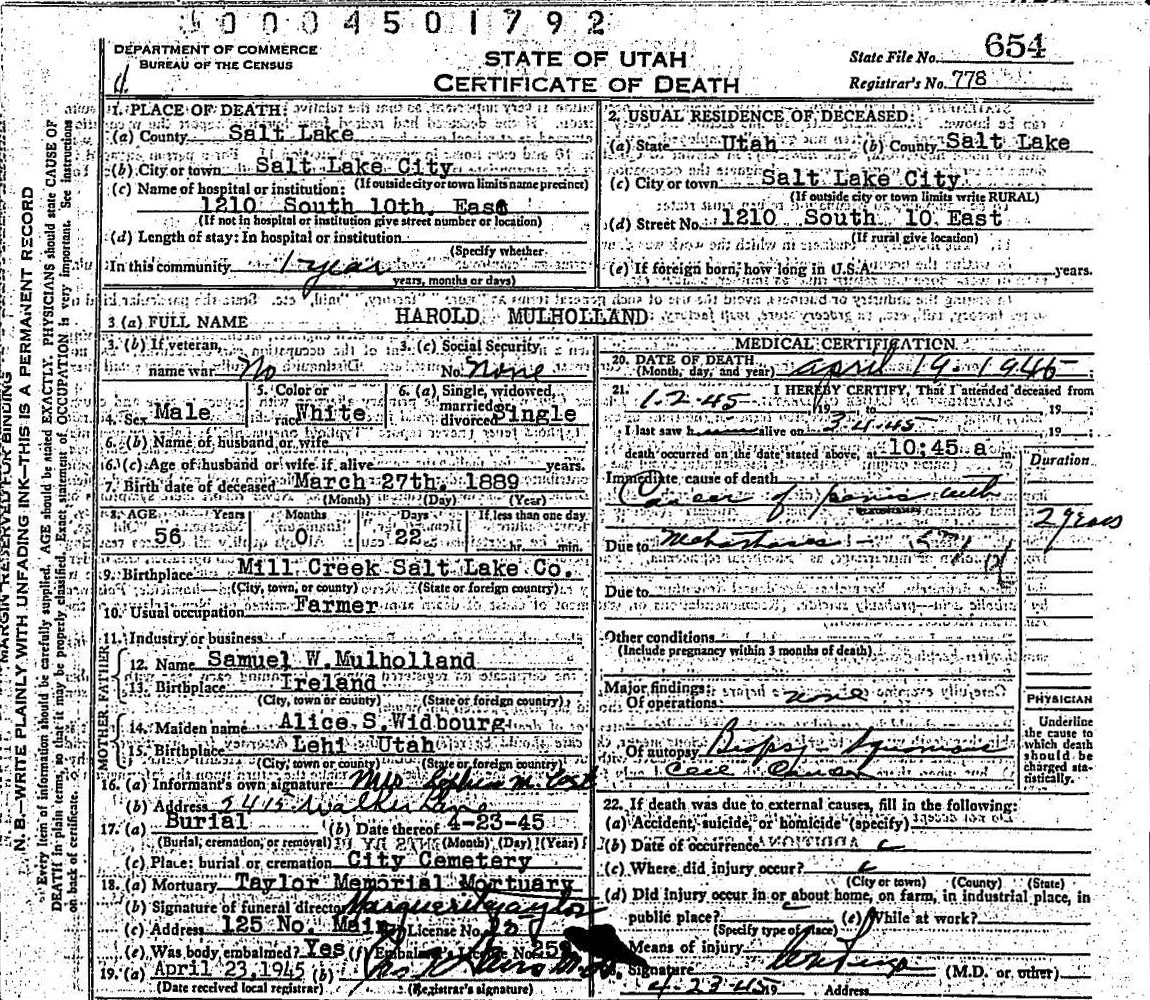 0004501792
DEPARTMENT OF COMMERCE
BUREAU OF THE CENSUS
STATE OF UTAH
CERTIFICATE OF DEATH
State File No. 654
Registrar's No. 778
MARGIN RESERVED FOR BINDING
N. B.—WRITE PLAINLY WITH UNFADING INK—THIS IS A PERMANENT RECORD
Every item of information should be carefully supplied. AGE should be stated EXACTLY. PHYSICIANS should state CAUSE OF
DEATH in plain terms, so that it may be properly classified. Exact statement of OCCUPATION is very important. See instructions
on back of certificate.
1. PLACE OF DEATH:
(a) County Salt Lake
(b) City or town Salt Lake City
(If outside city or town limits name precinct)
(c) Name of hospital or institution:
1210 South 10th. East
(If not in hospital or institution give street number or location)
(d) Length of stay: In hospital or institution
(Specify whether
In this community 1 year
years, months or days)
2. USUAL RESIDENCE OF DECEASED:
(a) State Utah (b) County Salt Lake
(c) City or town Salt Lake City
(If outside city or town limits write RURAL)
(d) Street No. 1210 South 10 East
(If rural give location)
(e) If foreign born, how long in U.S.A. years.
3 (a) FULL NAME HAROLD MULHOLLAND
3. (b) If veteran,
name war No
3. (c) Social Security
No. None
4. Sex Male
5. Color or
race White
6. (a) Single, widowed,
married,
divorced Single
6. (b) Name of husband or wife
6. (c) Age of husband or wife if alive years.
7. Birth date of deceased March 27th. 1889
(Month) (Day) (Year)
8. AGE Years Months Days If less than one day
56 0 22 hr. min.
9. Birthplace Mill Creek Salt Lake Co.
(City, town, or county) (State or foreign country)
10. Usual occupation Farmer
11. Industry or business
FATHER
12. Name Samuel W. Mulholland
13. Birthplace Ireland
(City, town or county) (State or foreign country)
MOTHER
14. Maiden name Alice S. Widbourg
15. Birthplace Lehi Utah
(City, town or county) (State or foreign country)
16. (a) Informant's own signature Mrs
(b) Address 2415 Walker Lane
17. (a) Burial (b) Date thereof 4-23-45
(Burial, cremation, or removal) (Month) (Day) (Year)
(c) Place: burial or cremation City Cemetery
18. (a) Mortuary Taylor Memorial Mortuary
(b) Signature of funeral director Marguerite Taylor
(c) Address 125 No. Main License No.
(e) Was body embalmed? Yes (f) Embalmer's License No. 259
19. (a) April 23, 1945 (b)
(Date received local registrar) (Registrar's signature)
MEDICAL CERTIFICATION
20. DATE OF DEATH
(Month, day, and year) April 19. 1945
21. I HEREBY CERTIFY, That I attended deceased from
1-2-45, 19 to , 19
I last saw h alive on 3-4-45, 19
death occurred on the date stated above, at 10:45 a m.
Duration
Immediate cause of death
Cancer of penis with
2 years
Due to Metastases
Due to
Other conditions
(Include pregnancy within 3 months of death)
Major findings:
Of operations none
Of autopsy Biopsy - Squamous
Cell Cancer
PHYSICIAN
Underline
the cause to
which death
should be
charged sta-
tistically.
22. If death was due to external causes, fill in the following:
(a) Accident, suicide, or homicide (specify)
(b) Date of occurrence
(c) Where did injury occur?
(City or town) (County) (State)
(d) Did injury occur in or about home, on farm, in industrial place, in
public place? (e) While at work?
(Specify type of place)
Means of injury
Signature (M.D. or other)
4-23-45 19 Address